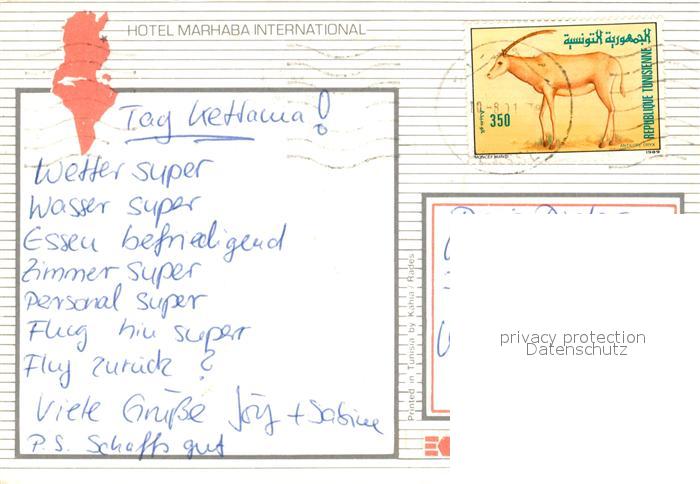 HOTEL MARHABA INTERNATIONAL
الجمهورية التونسية
REPUBLIQUE TUNISIENNE
350
MONCEF MANSI
ANTILOPE ORYX
1989
Tag Kettama!
Wetter super
Wasser super
Essen befriedigend
Zimmer super
Personal super
Flug hin super
Flug zurück ?
Viele Grüße Jörg + Sabine
P.S. Schaffs gut
Printed in Tunisia by Kahia / Rades
privacy protection
Datenschutz